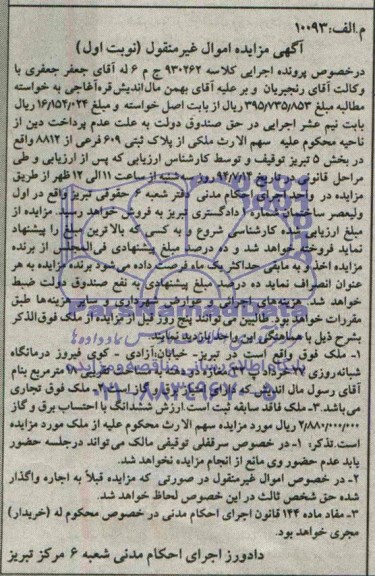 م.الف:۱۰۰۹۳
آگهی مزایده اموال غیرمنقول (نوبت اول)
درخصوص پرونده اجرایی کلاسه ۹۳۰۲۶۲ ج م ۶ له آقای جعفر جعفری با
وکالت آقای رنجبریان و بر علیه آقای بهمن مال‌اندیش‌قره‌آغاجی به خواسته
مطالبه مبلغ ۳۹۵/۷۳۵/۸۵۳ ریال از بابت اصل خواسته و مبلغ ۱۶/۱۵۴/۰۲۴ ریال
بابت نیم عشر اجرایی در حق صندوق دولت به علت عدم پرداخت دین از
ناحیه محکوم علیه سهم الارث ملکی از پلاک ثبتی ۶۰۹ فرعی از ۸۸۱۲ واقع
در بخش ۵ تبریز توقیف و توسط کارشناس ارزیابی که پس از ارزیابی و طی
مراحل قانونی در تاریخ ۹۴/۷/۱۴ روز سه‌شنبه از ساعت ۱۱ الی ۱۲ ظهر از طریق
مزایده در واحد اجرای احکام مدنی دفتر شعبه ۶ حقوقی تبریز واقع در اول
ولیعصر ساختمان شماره ۲ دادگستری تبریز به فروش خواهد رسید. مزایده از
مبلغ ارزیابی شده کارشناسی شروع و به کسی که بالاترین مبلغ را پیشنهاد
نماید فروخته خواهد شد و ده درصد مبلغ پیشنهادی فی‌المجلس از برنده
مزایده اخذ و به مابقی حداکثر یک ماه فرصت داده می‌شود برنده مزایده به هر
عنوان انصراف نماید ده درصد مبلغ پیشنهادی به نفع صندوق دولت ضبط
خواهد شد. هزینه‌های اجرائی و عوارض شهرداری و سایر هزینه‌ها طبق
مقررات خواهد بود. طالبین می‌توانند پنج روز قبل از مزایده از ملک فوق‌الذکر
بشرح ذیل با هماهنگی این واحد بازدید نمایند.
۱- ملک فوق واقع است در تبریز- خیابان آزادی - کوی فیروز درمانگاه
شبانه‌روزی ۲۲ خرداد مغازه دو دهنه به مساحت تقریبی مترمربع بنام
آقای رسول مال اندیش که دارای امتیاز برق و گاز است. ۲- ملک فوق تجاری
می‌باشد. ۳- ملک فاقد سابقه ثبت است. ارزش ششدانگ با احتساب برق و گاز
۲/۸۸۰/۰۰۰/۰۰۰ ریال مورد مزایده سهم الارث محکوم علیه از ملک مورد مزایده
است. تذکر: ۱- در خصوص سرقفلی توقیفی مالک می‌تواند درجلسه حضور
یابد عدم حضور وی مانع از انجام مزایده نخواهد شد.
۲- در خصوص اموال غیرمنقول در صورتی که مزایده قبلاً به اجاره واگذار
شده حق شخص ثالث در این خصوص لحاظ خواهد شد.
۳- مفاد ماده ۱۴۴ قانون اجرای احکام مدنی در خصوص محکوم له (خریدار)
مجری خواهد بود.
دادورز اجرای احکام مدنی شعبه ۶ مرکز تبریز
ParsNamadData
۰۲۱-۸۸۳۴۹۶۷۰-۵